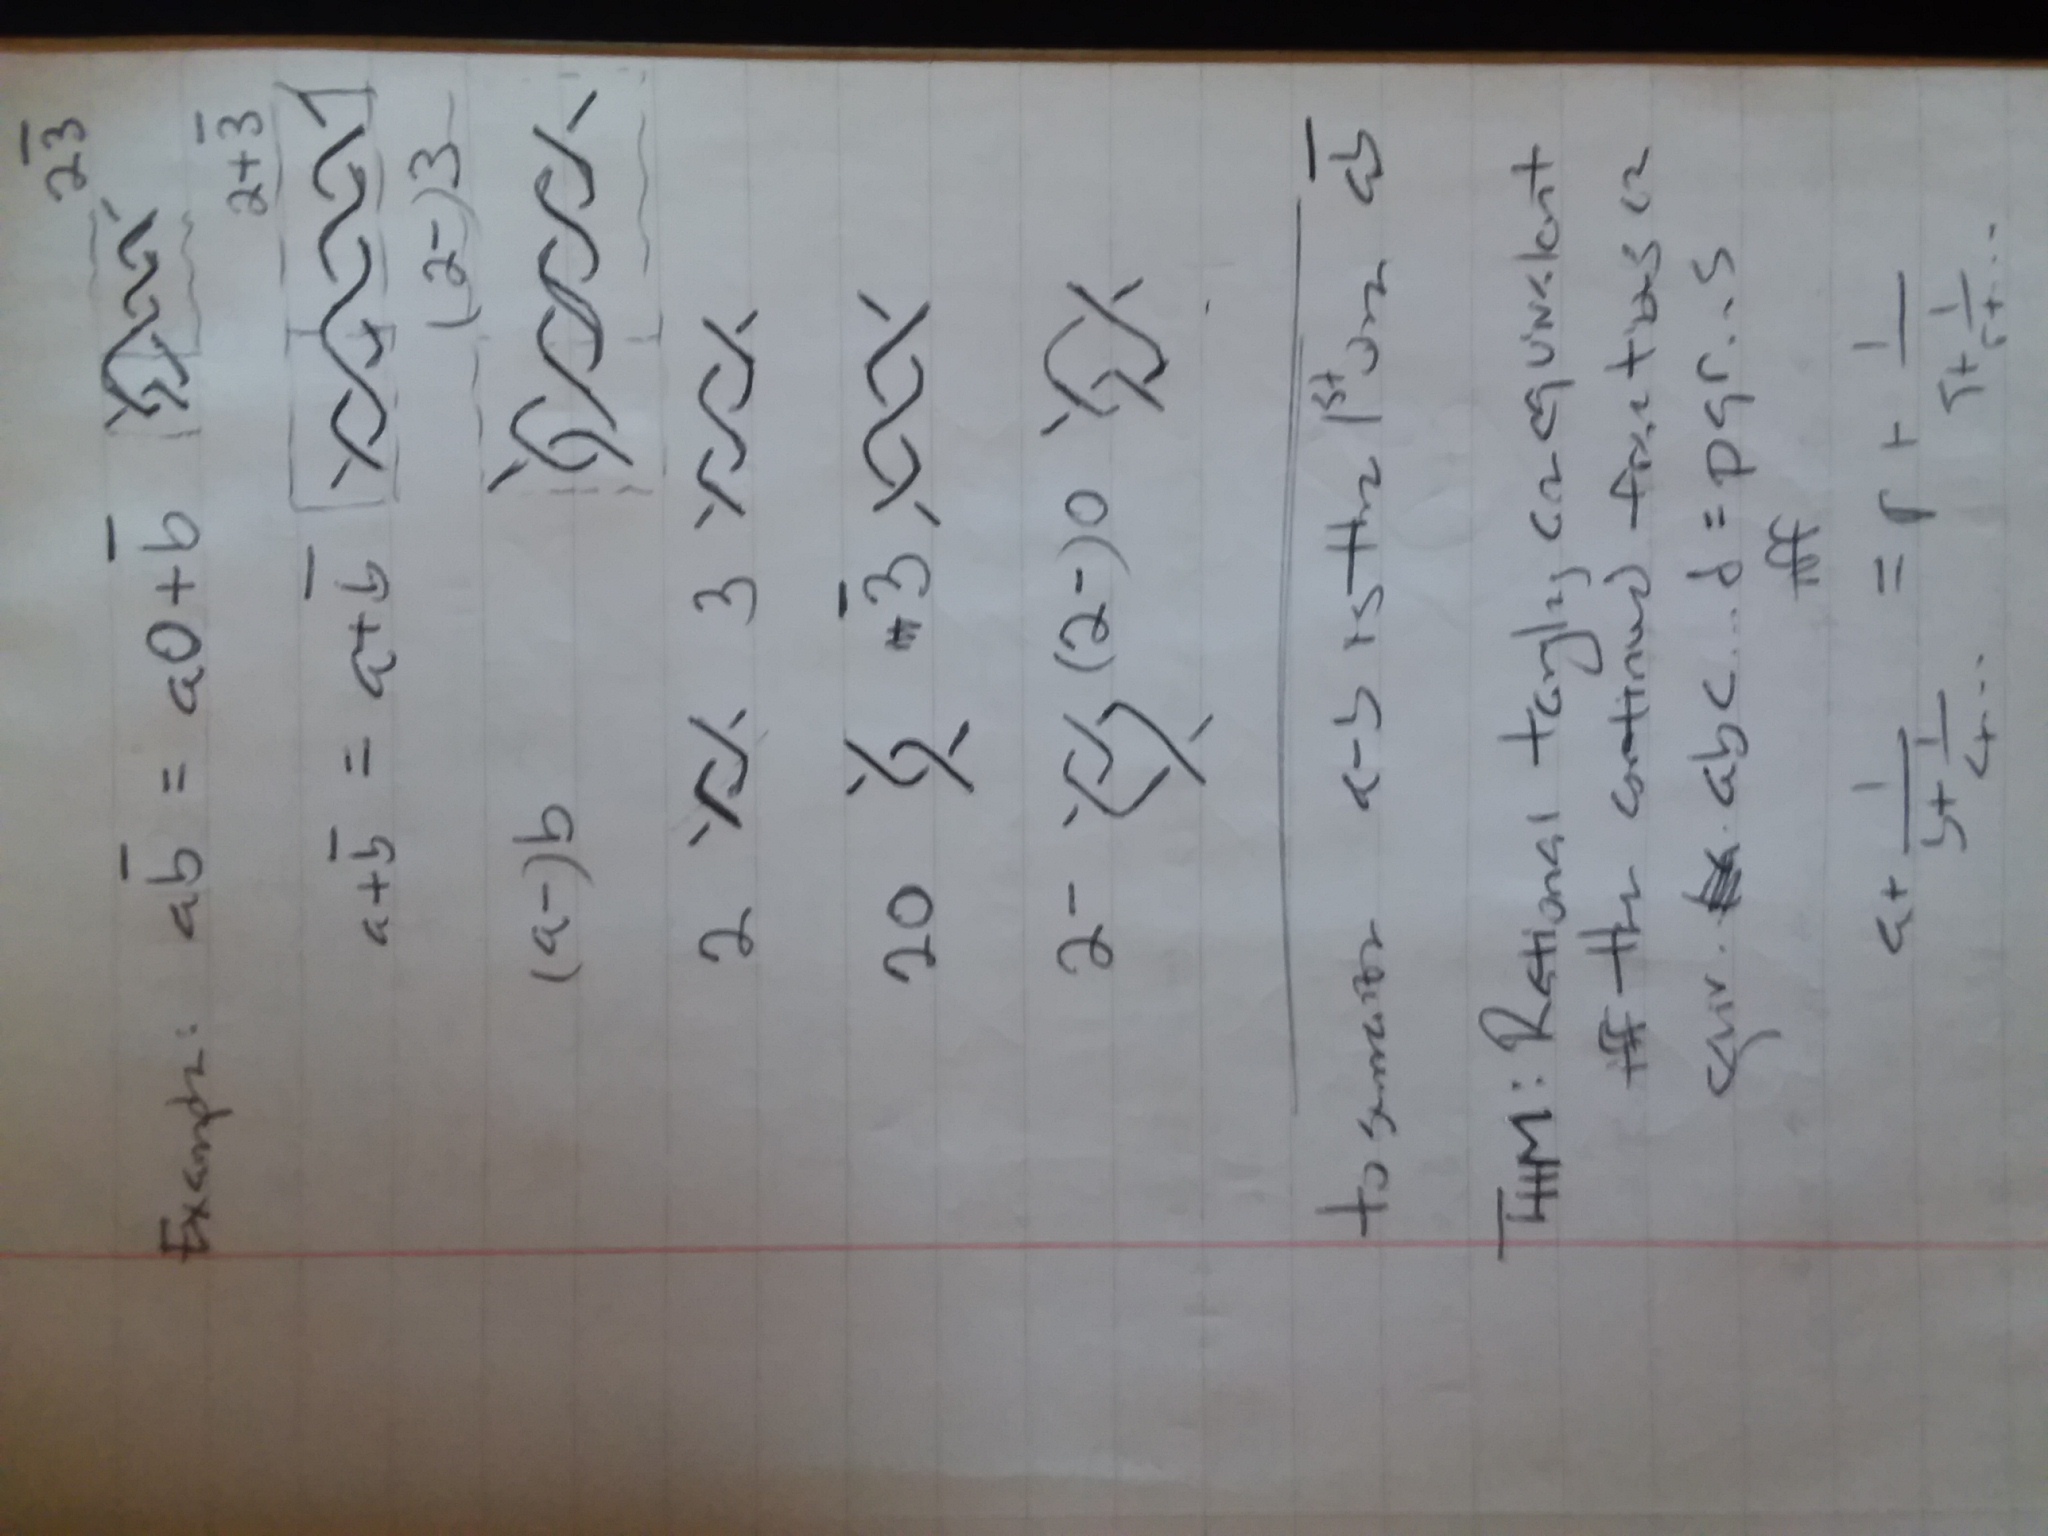 Example: ab̅ = a0+b̅ 2̅3
a+b̅ = a+b̅ 2+3̅
(a-)b (2-)3
2 3
20 3̅
2- (2-)0
to summarize a-b is the 1st on ab̅
THM: Rational tangles are equivalent
iff the continued fractions are
equiv. abc...d = pqr..s
iff
a+1/(b+1/(c+...)) = p + 1/(q+1/(r+...))